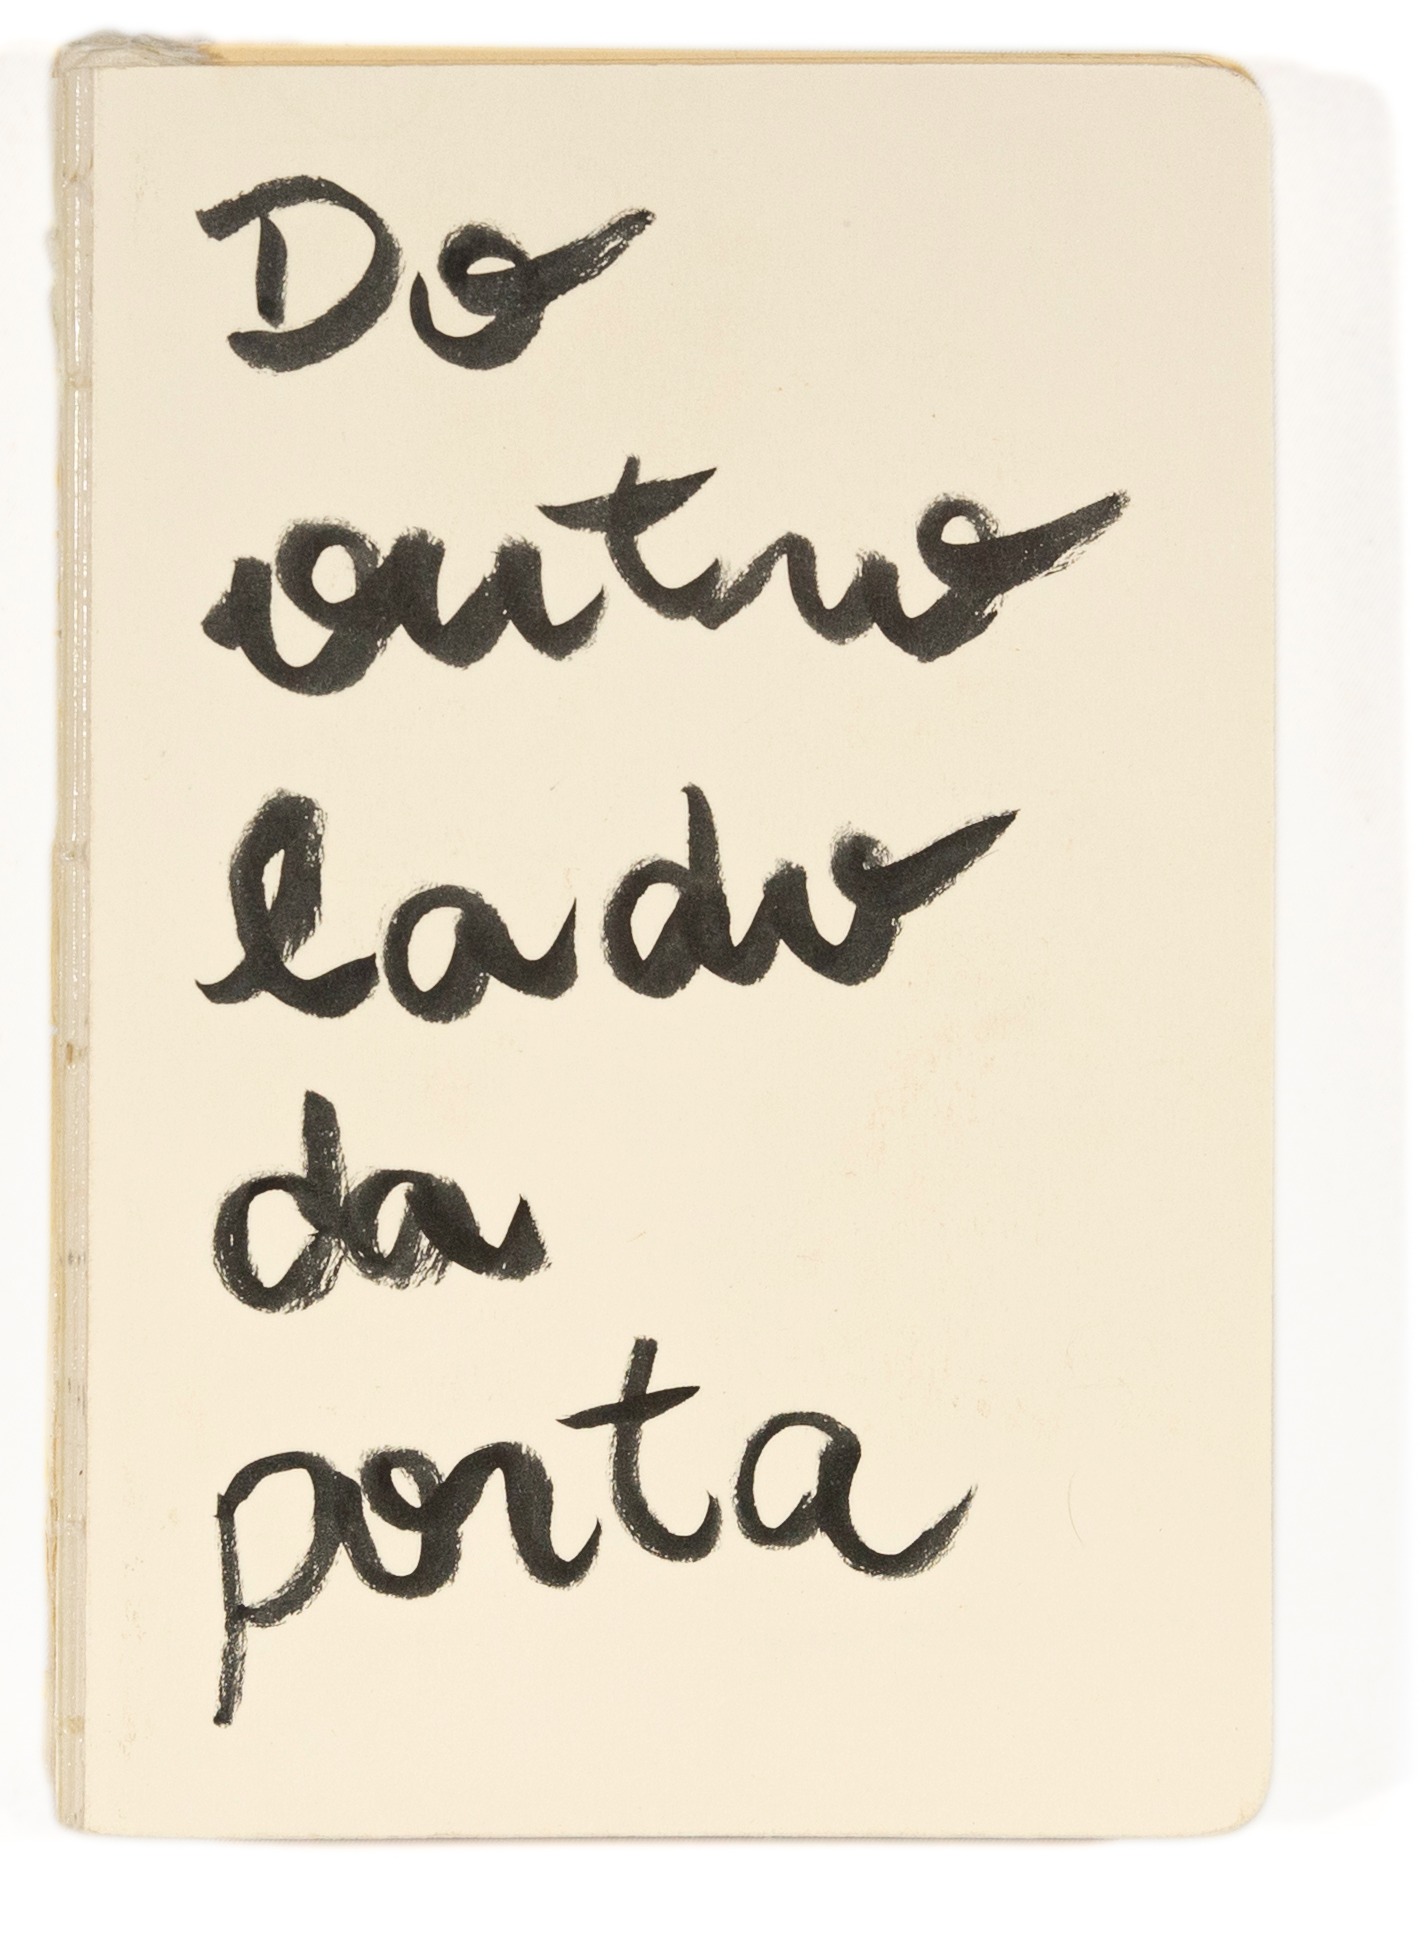 Do
outro
lado
da
porta